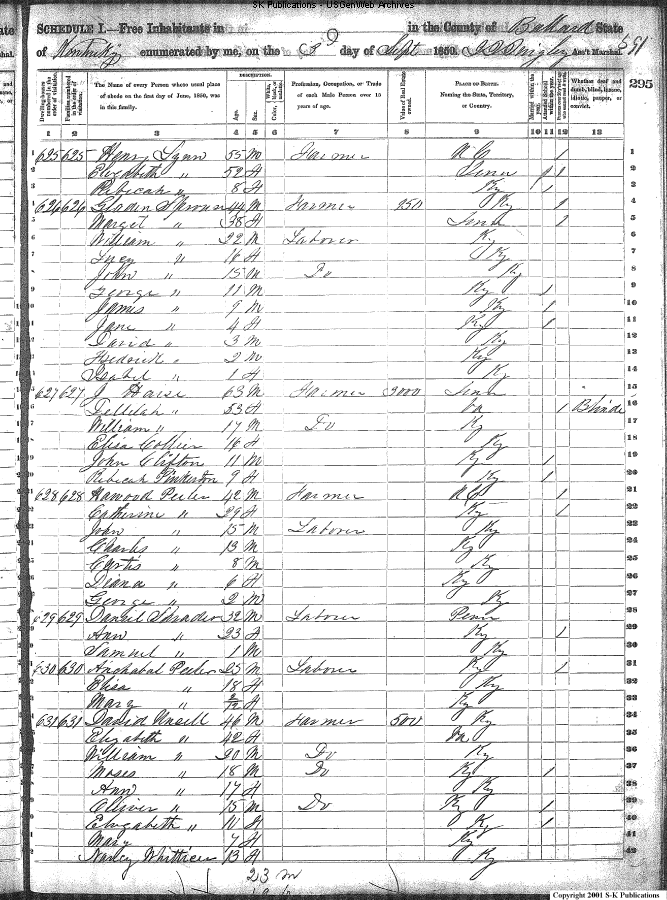 SK Publications - USGenWeb Archives
SCHEDULE I.—Free Inhabitants in in the County of Ballard State
of Kentucky enumerated by me, on the 3 day of Sept 1850. Ass't Marshal. 591
395
Dwelling-houses numbered in the order of visitation.
Families numbered in the order of visitation.
The Name of every Person whose usual place of abode on the first day of June, 1850, was in this family.
DESCRIPTION.
Age.
Sex.
Color, White, black, or mulatto.
Profession, Occupation, or Trade of each Male Person over 15 years of age.
Value of Real Estate owned.
PLACE OF BIRTH. Naming the State, Territory, or Country.
Married within the year.
Attended School within the year.
Whether deaf and dumb, blind, insane, idiotic, pauper, or convict.
1 2 3 4 5 6 7 8 9 10 11 12 13
1 625 625 Henry Lynn 55 M Farmer N C 1 1
2 Elizabeth " 52 F Tenn 1 1 2
3 Rebecah " 8 F Ky 1 3
4 626 626 44 M Farmer 950 Ky 1 4
5 Marget " 38 F Tenn 1 5
6 William " 22 M Laborer Ky 6
7 Lucy " 16 F Ky 7
8 John " 15 M Do Ky 8
9 George " 11 M Ky 1 9
10 James " 9 M Ky 1 10
11 Jane " 4 F Ky 1 11
12 David " 3 M Ky 12
13 Fredrick " 2 M Ky 13
14 Isabel " 1 F Ky 14
15 627 627 J Haise 63 M Farmer 3000 Tenn 15
16 Delilah " 53 F Va 1 Blinde 16
17 William " 17 M Do Ky 17
18 Elisa Collier 16 F Ky 18
19 John Clifton 11 M Ky 1 19
20 Rebicah Pinkerton 9 F Ky 1 20
21 628 628 Hawood Peeler 42 M Farmer N C 1 21
22 Catherine " 39 F Ky 1 22
23 John " 15 M Laborer Ky 23
24 Charls " 13 M Ky 24
25 Curtis " 8 M Ky 25
26 Diana " 6 F Ky 26
27 George " 2 M Ky 27
28 629 629 Daniel Shrader 32 M Laborer Penn 28
29 Ann " 23 F Ky 1 29
30 Samuel " 1 M Ky 30
31 630 630 Archabal Peeler 25 M Laborer Ky 1 31
32 Elisa " 18 F Ky 32
33 Mary " 2/12 F Ky 33
34 631 631 David Uneill 46 M Farmer 500 Ky 34
35 Elizabeth " 42 F Va 35
36 William " 20 M Do Ky 36
37 Moses " 18 M Do Ky 1 37
38 Ann " 17 F Ky 38
39 Oliver " 15 M Do Ky 1 39
40 Elizabeth " 11 F Ky 1 40
41 Mary " 7 F Ky 41
42 Nancy Whittier 13 F Ky 42
23 m
Copyright 2001 S-K Publications